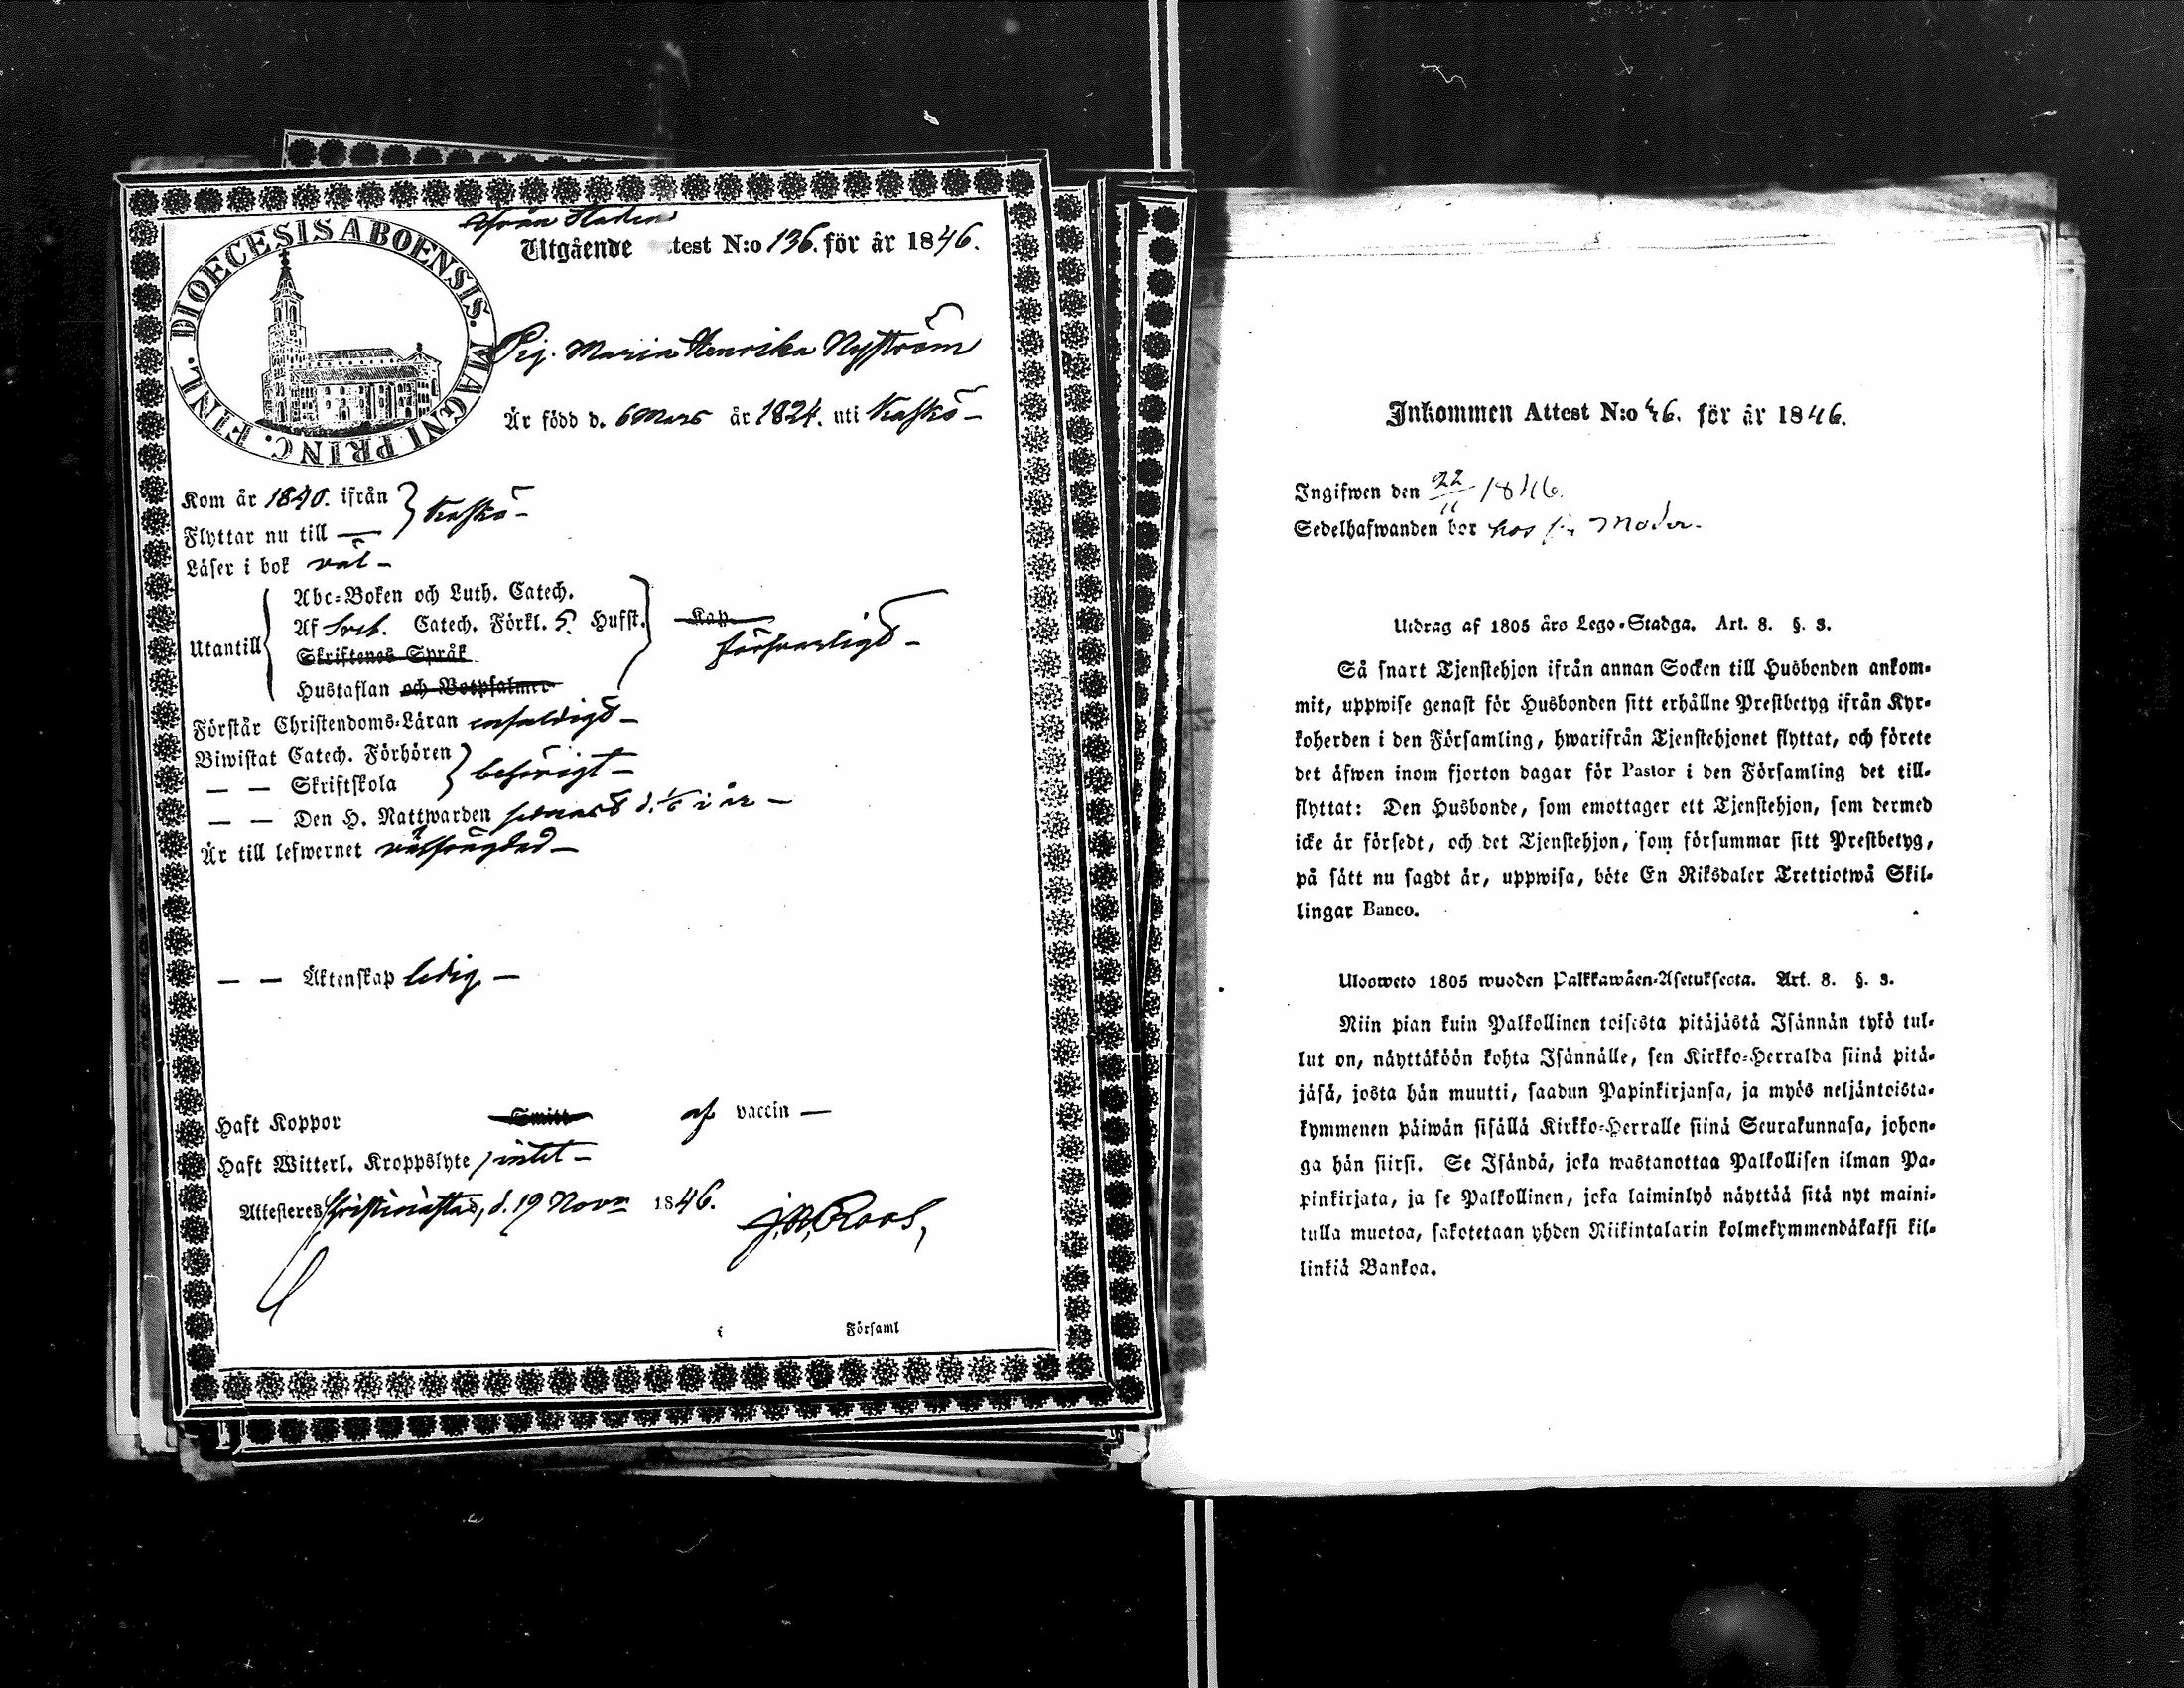 från Staden
Utgående test N:o 136. för år 1846.
DIOECESIS ABOENSIS. MAGNI PRINC. FINL.
Pig. Maria Henrika Nyström
Är född d. 6 Mars år 1824. uti Kaskö –
Kom år 1840. ifrån
Flyttar nu till —
Kaskö –
Läser i bok väl –
Utantill
Abc-Boken och Luth. Catech.
Af Sveb. Catech. Förkl. 5. Hufst.
Skriftenes Språk
Hustaflan och Botpsalmer
Kap.
försvarligt –
Förstår Christendoms-Läran enfaldigt –
Biwistat Catech. Förhören
— — Skriftskola
behörigt –
— — Den H. Nattwarden senast d. i år –
Är till lefwernet välfrägdad –
— — Äktenskap ledig –
Haft Koppor Smitt af vaccin —
Haft Witterl. Kroppslyte intet –
Attesteres Christinæstad, d. 19 Novr 1846.
J. A. Roos,
i Församl
Inkommen Attest N:o 46. för år 1846.
Ingifwen den 22/11 1846.
Sedelhafwanden bor hos sin Moder.
Utdrag af 1805 års Lego-Stadga. Art. 8. §. 3.
Så snart Tjenstehjon ifrån annan Socken till Husbonden ankom-
mit, uppwise genast för Husbonden sitt erhållne Prestbetyg ifrån Kyr-
koherden i den Församling, hwarifrån Tjenstehjonet flyttat, och förete
det äfwen inom fjorton dagar för Pastor i den Församling det till-
flyttat: Den Husbonde, som emottager ett Tjenstehjon, som dermed
icke är försedt, och det Tjenstehjon, som försummar sitt Prestbetyg,
på sätt nu sagdt är, uppwisa, böte En Riksdaler Trettiotwå Skil-
lingar Banco.
Ulosweto 1805 wuoden Palkkawäen-Asetuksesta. Art. 8. §. 3.
Niin pian kuin Palkollinen toisesta pitäjästä Isännän tykö tul-
lut on, näyttäköön kohta Isännälle, sen Kirkko-Herralda siinä pitä-
jäsä, josta hän muutti, saadun Papinkirjansa, ja myös neljäntoista-
kymmenen päiwän sisällä Kirkko-Herralle siinä Seurakunnasa, johon-
ga hän siirsi. Se Isändä, joka wastanottaa Palkollisen ilman Pa-
pinkirjata, ja se Palkollinen, joka laiminlyö näyttää sitä nyt maini-
tulla muotoa, sakotetaan yhden Riikintalarin kolmekymmendäkaksi kil-
linkiä Bankoa.